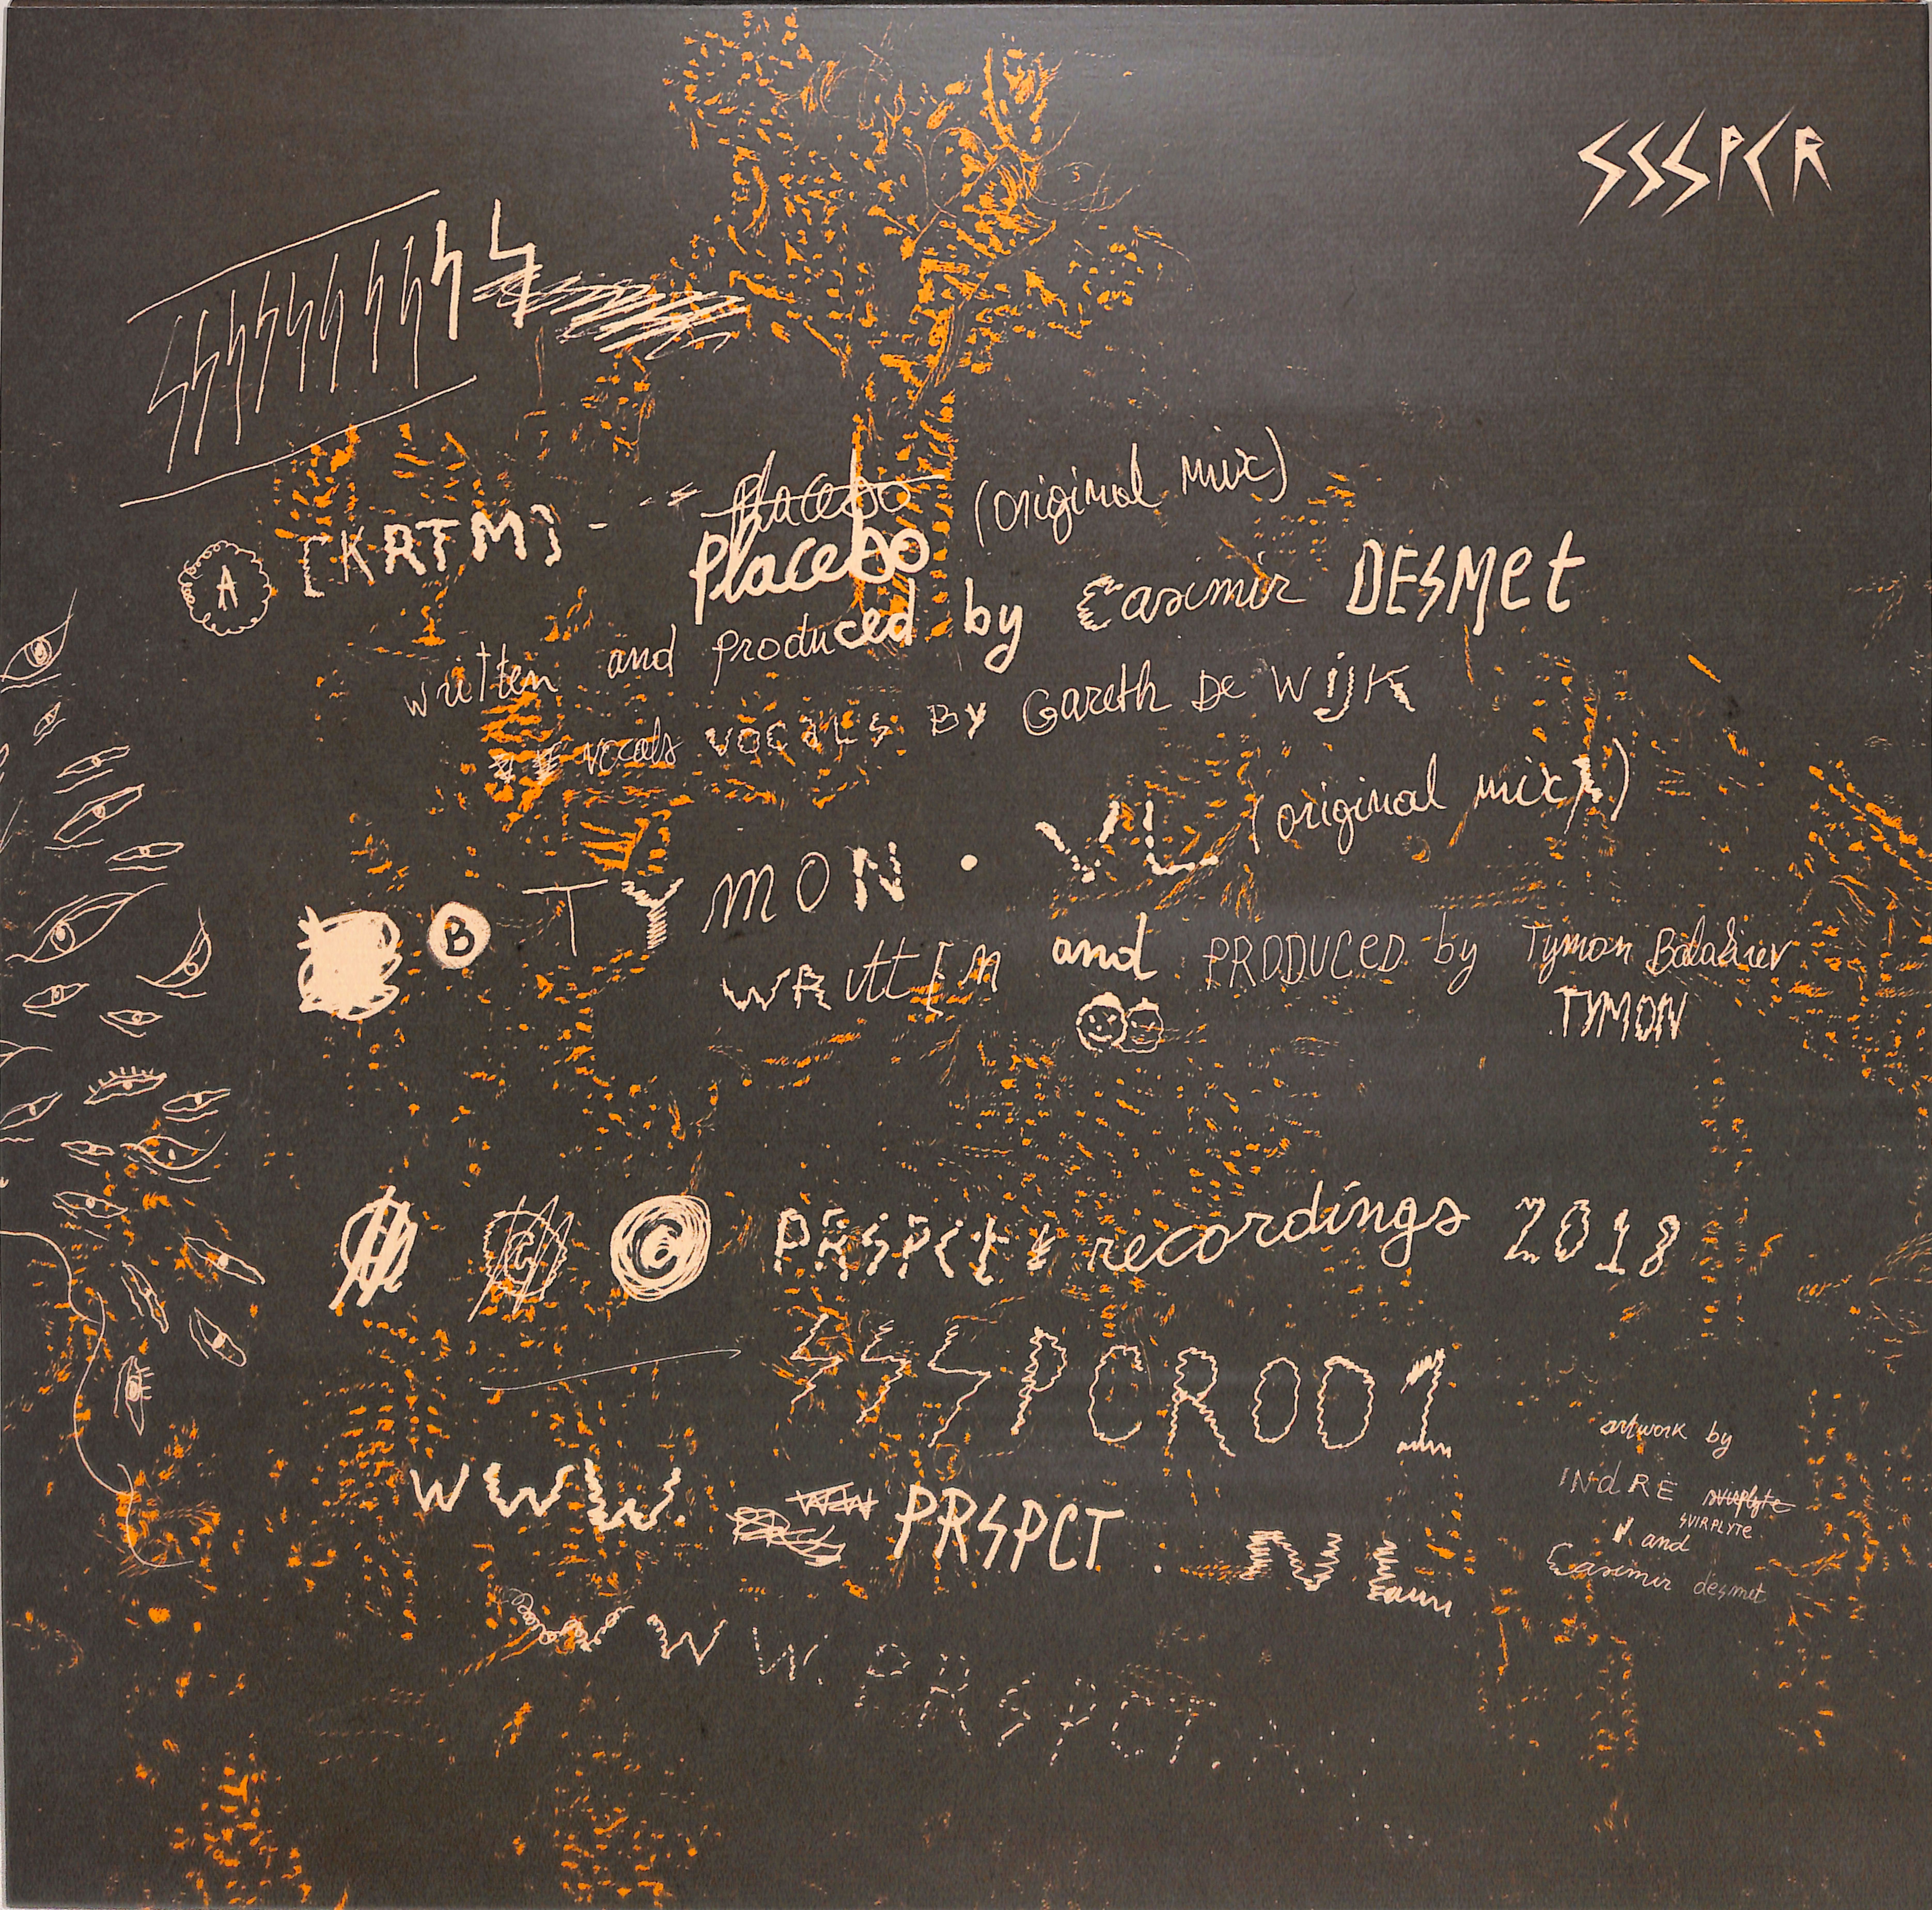 SSSPCR
A [KRTM] - Placebo
Placebo (original mix)
written and produced by Casimir DESMet
vocals VOCALS BY Gareth De WIJK
B TYMON . VL (original mix)
WRItt[N and PRODUCED by Tymon
TYMON
C C PRSPCt recordings 2018
SSSPCR001
www. PRSPCT. NL
WWW. PRSPCT.
artwork by
INdRE svirplyte
SVIRPLYTE
and
Casimir desmet